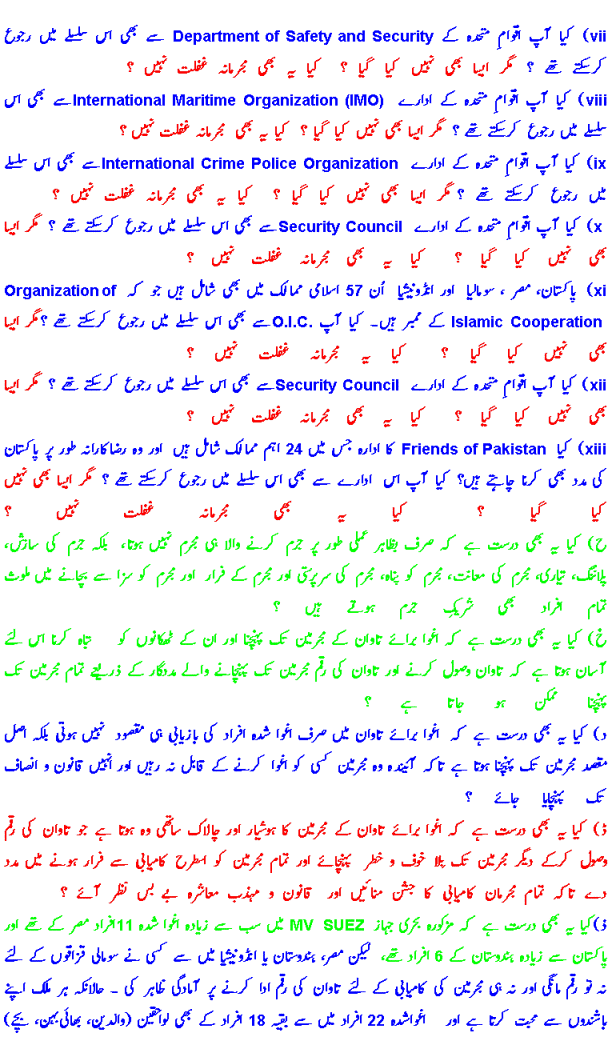 vii) کیا آپ اقوامِ متحدہ کے Department of Safety and Security سے بھی اس سلسلے میں رجوع
کرسکتے تھے ؟ مگر ایسا بھی نہیں کیا گیا ؟ کیا یہ بھی مجرمانہ غفلت نہیں ؟
viii) کیا آپ اقوامِ متحدہ کے ادارے International Maritime Organization (IMO) سے بھی اس
سلسلے میں رجوع کرسکتے تھے ؟ مگر ایسا بھی نہیں کیا گیا ؟ کیا یہ بھی مجرمانہ غفلت نہیں ؟
ix) کیا آپ اقوامِ متحدہ کے ادارے International Crime Police Organization سے بھی اس سلسلے
میں رجوع کرسکتے تھے ؟ مگر ایسا بھی نہیں کیا گیا ؟ کیا یہ بھی مجرمانہ غفلت نہیں ؟
x) کیا آپ اقوامِ متحدہ کے ادارے Security Council سے بھی اس سلسلے میں رجوع کرسکتے تھے ؟ مگر ایسا
بھی نہیں کیا گیا ؟ کیا یہ بھی مجرمانہ غفلت نہیں ؟
xi) پاکستان، مصر ، سومالیا اور انڈونیشیا اُن 57 اسلامی ممالک میں بھی شامل ہیں جو کہ Organization of
Islamic Cooperation کے ممبر ہیں۔ کیا آپ O.I.C. سے بھی اس سلسلے میں رجوع کرسکتے تھے ؟ مگر ایسا
بھی نہیں کیا گیا ؟ کیا یہ مجرمانہ غفلت نہیں ؟
xii) کیا آپ اقوامِ متحدہ کے ادارے Security Council سے بھی اس سلسلے میں رجوع کرسکتے تھے ؟ مگر ایسا
بھی نہیں کیا گیا ؟ کیا یہ بھی مجرمانہ غفلت نہیں ؟
xiii) کیا Friends of Pakistan کا ادارہ جس میں 24 اہم ممالک شامل ہیں اور وہ رضاکارانہ طور پر پاکستان
کی مدد بھی کرنا چاہتے ہیں؟ کیا آپ اس ادارے سے بھی اس سلسلے میں رجوع کرسکتے تھے ؟ مگر ایسا بھی نہیں
کیا گیا ؟ کیا یہ بھی مجرمانہ غفلت نہیں ؟
ح) کیا یہ بھی درست ہے کہ صرف بظاہر عملی طور پر جرم کرنے والا ہی مجرم نہیں ہوتا، بلکہ جرم کی سازش،
پلاننگ، تیاری، مجرم کی معانت، مجرم کو پناہ، مجرم کی سرپرستی اور مجرم کے فرار اور مجرم کو سزا سے بچانے میں ملوث
تمام افراد بھی شریکِ جرم ہوتے ہیں ؟
خ) کیا یہ بھی درست ہے کہ اغوا برائے تاوان کے مجرمین تک پہنچنا اور ان کے ٹھکانوں کو تباہ کرنا اس لئے
آسان ہوتا ہے کہ تاوان وصول کرنے اور تاوان کی رقم مجرمین تک پہنچانے والے مددگار کے ذریعے تمام مجرمین تک
پہنچنا ممکن ہو جاتا ہے ؟
د) کیا یہ بھی درست ہے کہ اغوا برائے تاوان میں صرف اغوا شدہ افراد کی بازیابی ہی مقصود نہیں ہوتی بلکہ اصل
مقصد مجرمین تک پہنچنا ہوتا ہے تاکہ آئیندہ وہ مجرمین کسی کو اغوا کرنے کے قابل نہ رہیں اور انہیں قانون و انصاف
تک پہنچایا جائے ؟
ڈ) کیا یہ بھی درست ہے کہ اغوا برائے تاوان کے مجرمین کا ہوشیار اور چالاک ساتھی وہ ہوتا ہے جو تاوان کی رقم
وصول کرکے دیگر مجرمین تک بلا خوف و خطر پہنچائے اور تمام مجرمین کو اسطرح کامیابی سے فرار ہونے میں مدد
دے تاکہ تمام مجرمان کامیابی کا جشن منائیں اور قانون و مہذب معاشرہ بے بس نظر آئے ؟
ذ) کیا یہ بھی درست ہے کہ مزکورہ بحری جہاز MV SUEZ میں سب سے زیادہ اغوا شدہ 11 افراد مصر کے تھے اور
پاکستان سے زیادہ ہندوستان کے 6 افراد تھے، لیکن مصر، ہندوستان یا انڈونیشیا میں سے کسی نے سومالی قزاقوں کے لئے
نہ تو رقم مانگی اور نہ ہی مجرمین کی کامیابی کے لئے تاوان کی رقم ادا کرنے پر آمادگی ظاہر کی ۔ حالانکہ ہر ملک اپنے
باشندوں سے محبت کرتا ہے اور اغواشدہ 22 افراد میں سے بقیہ 18 افراد کے بھی لواحقین (والدین، بھائی بہن، بچے)